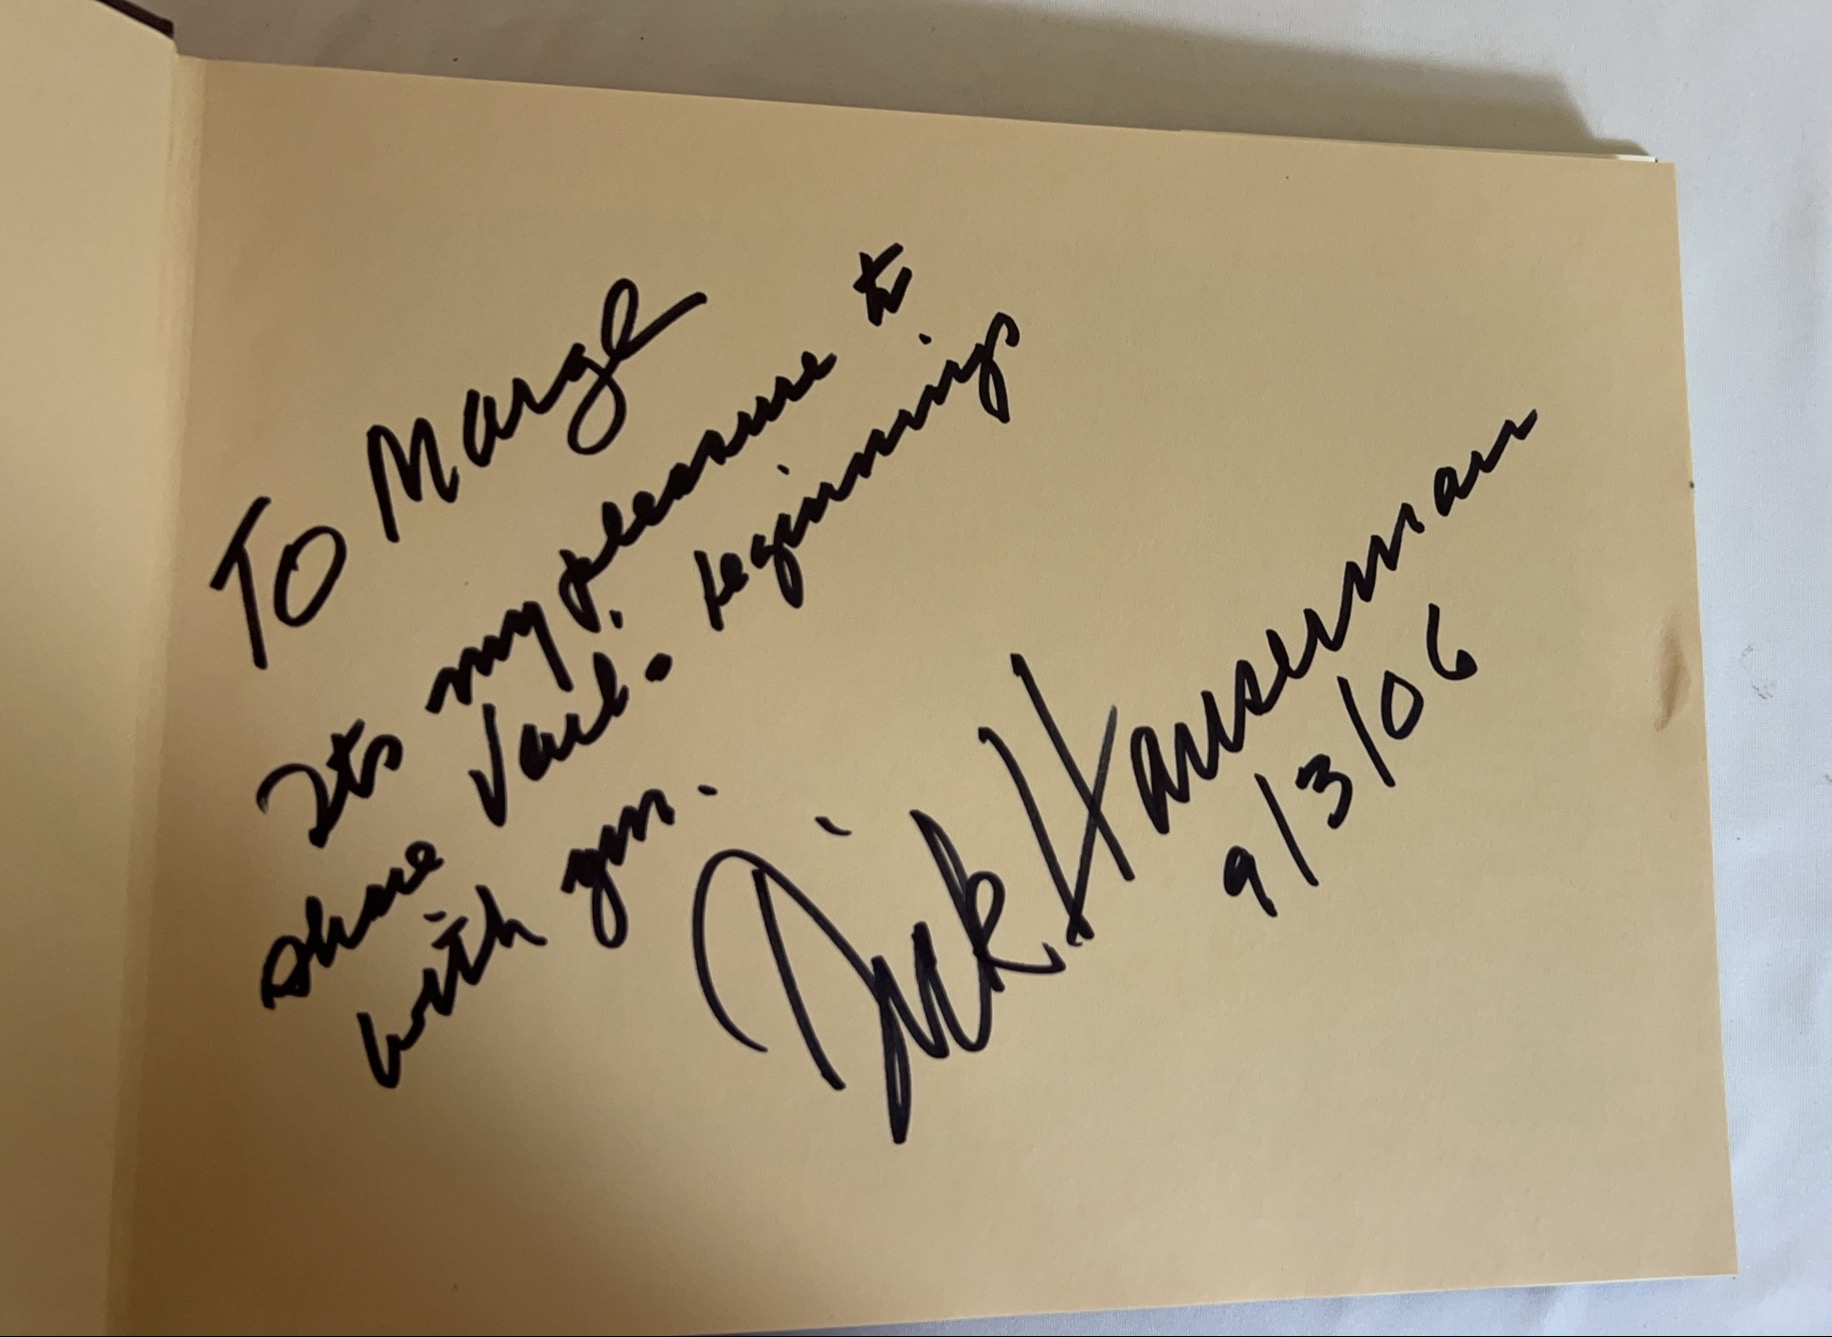 To Marge
Its my pleasure to
share Vail's beginnings
with you.
Dick Hauserman
9/3/06